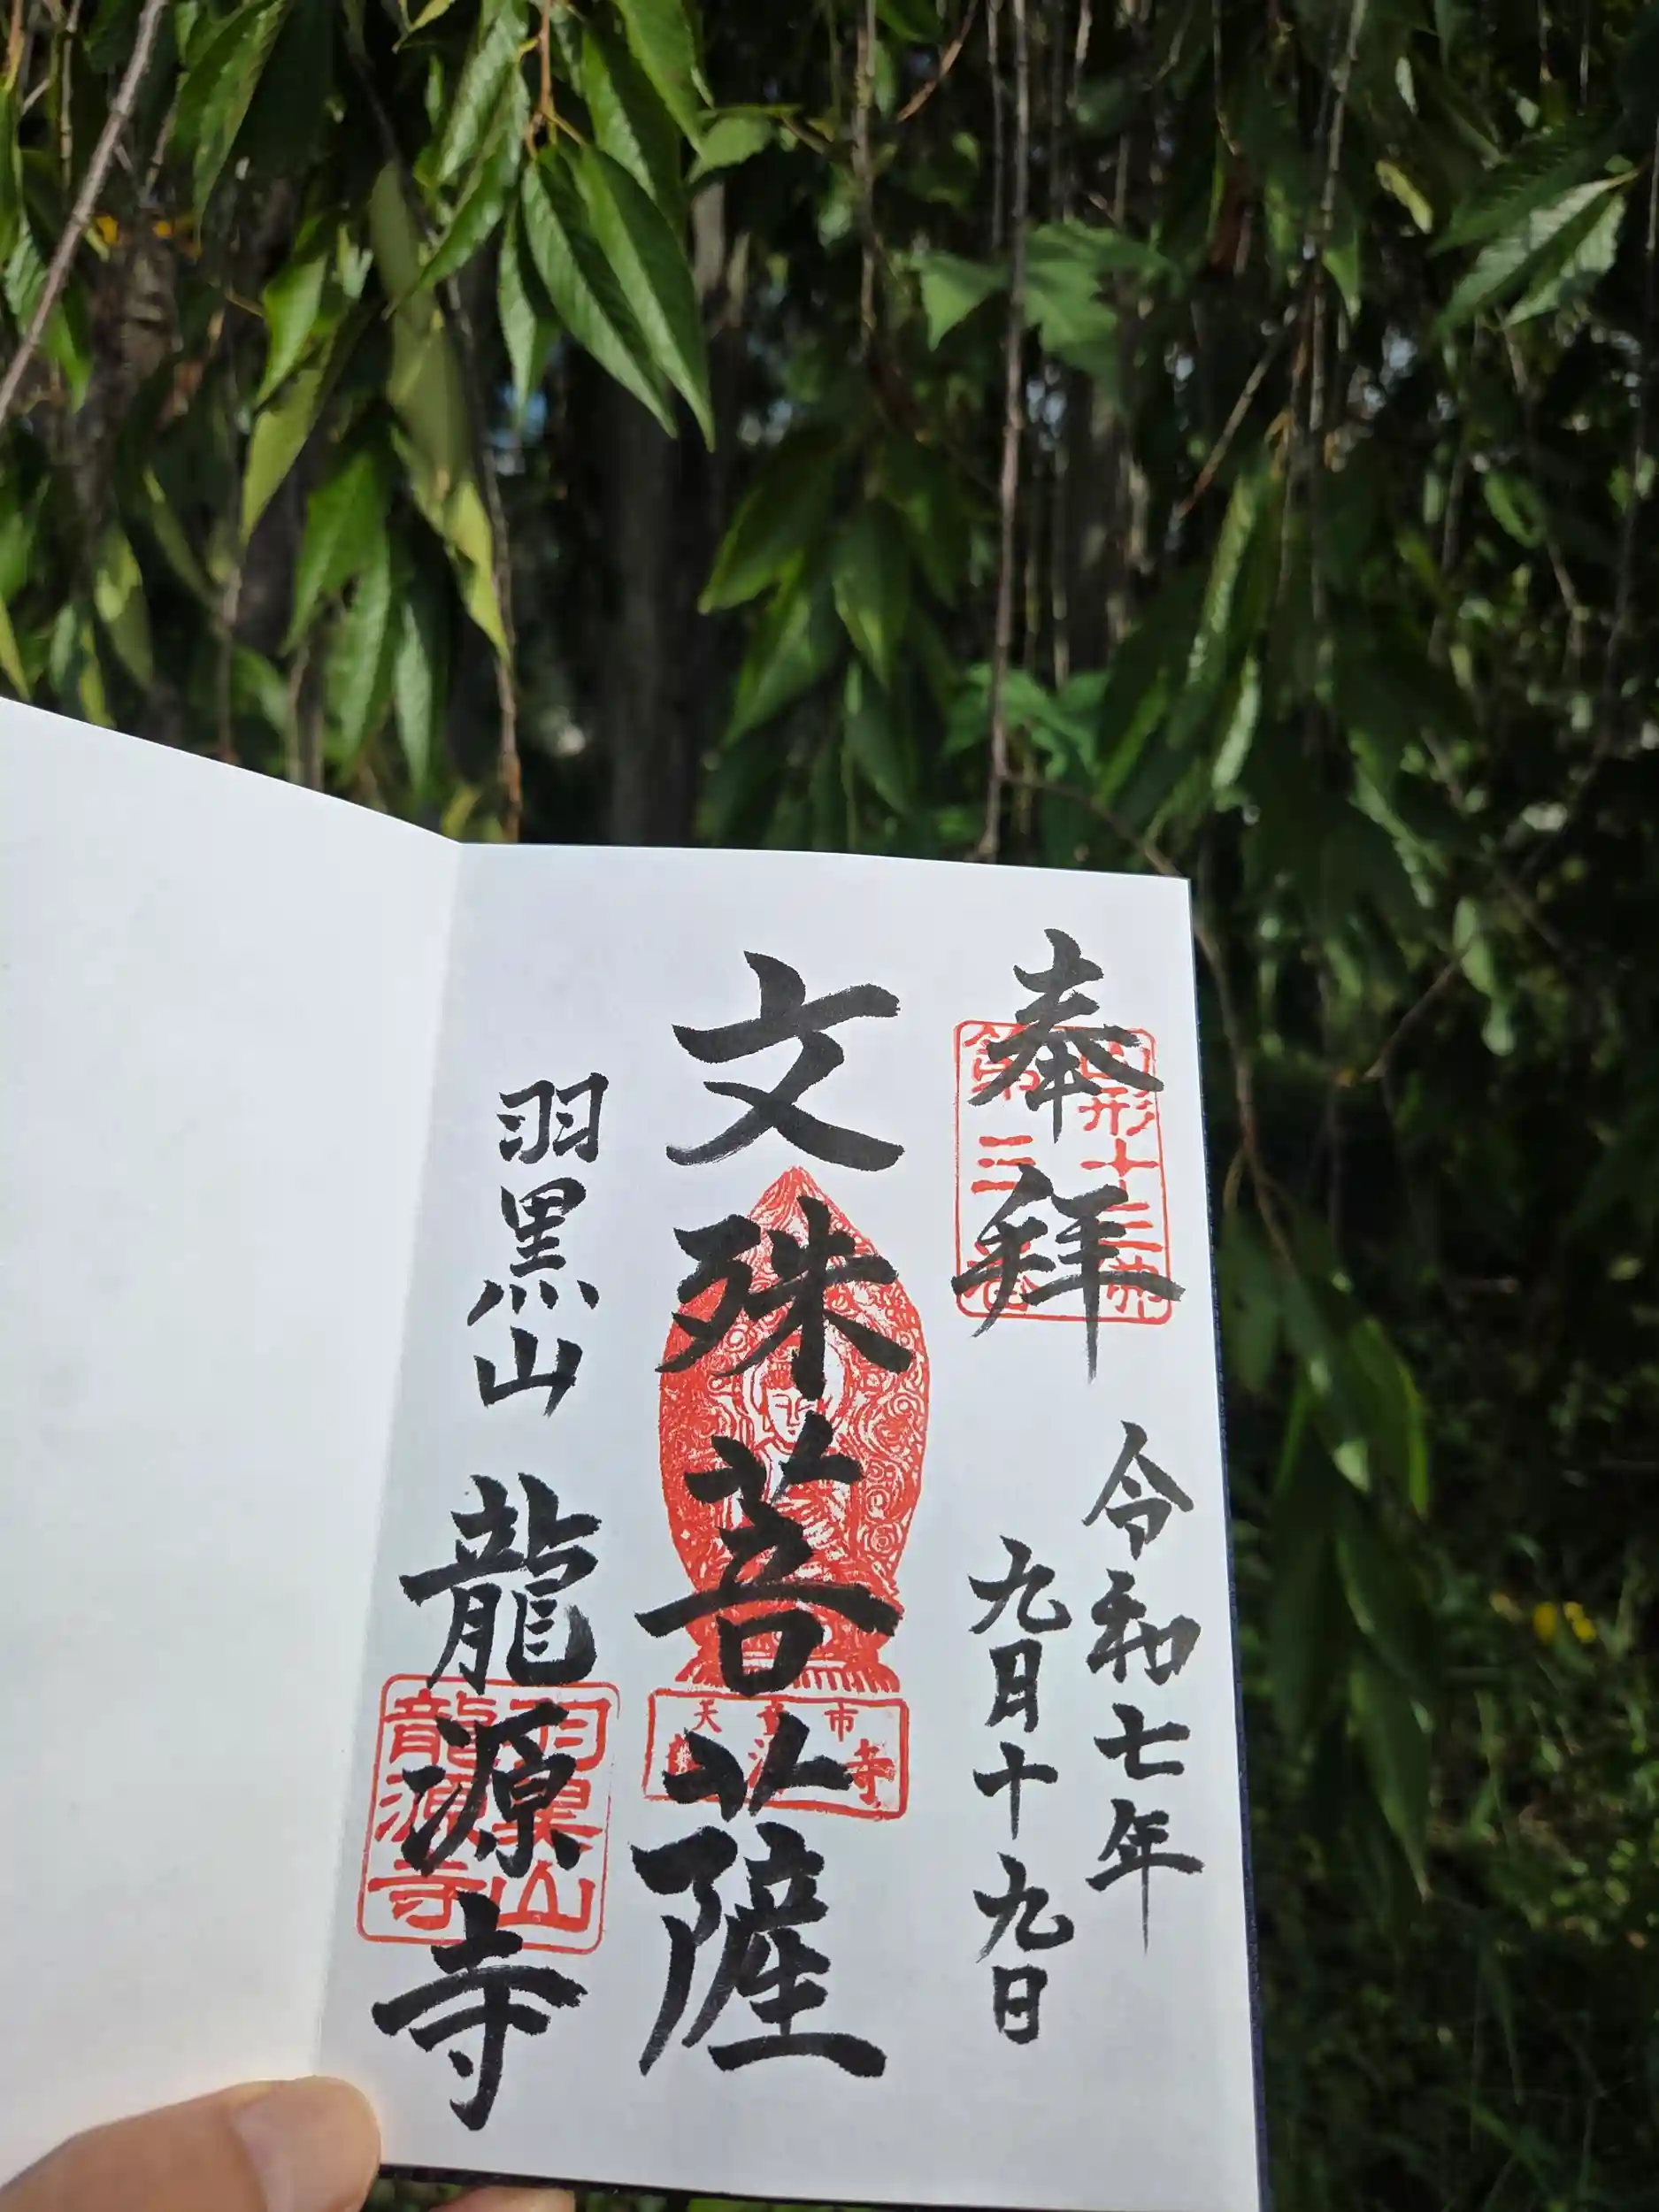 奉拝
山形十三佛
第三番
令和七年
九月十九日
文殊菩薩
天童市
龍源寺
羽黒山 龍源寺
羽黒山
龍源寺